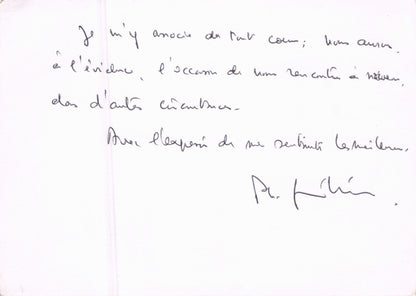 Je m'y associe de tout coeur ; nous aurons,
à l'évidence, l'occasion de nous rencontrer à nouveau,
dans d'autres circonstances.
Avec l'expression de mes sentiments les meilleurs.
Ph.